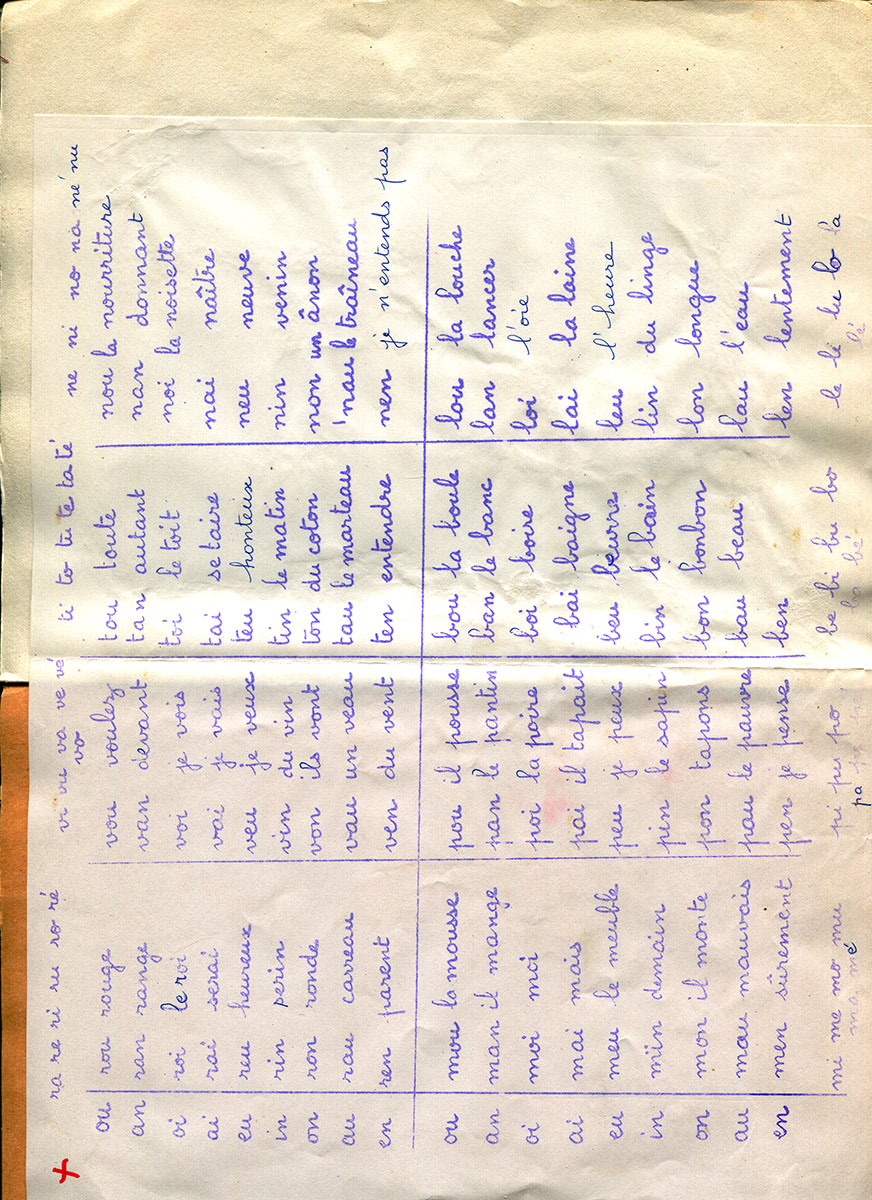 ra re ri ru ro ré vi vu va ve vé ti to tu te ta té ne ni no na né nu
vo
ou rou rouge vou voulez tou toute nou la nourriture
an ran range van devant tan autant nan donnant
oi roi le roi voi je vois toi le toit noi la noisette
ai rai serai vai je vais tai se taire nai naître
eu reu heureux veu je veux teu honteux neu neuve
in rin perin vin du vin tin le matin nin venin
on ron ronde von ils vont ton du coton non un ânon
au rau carreau vau un veau tau le marteau nau le traîneau
en ren parent ven du vent ten entendre nen je n'entends pas
ou mou la mousse pou il pousse bou la boule lou la louche
an man il mange pan le pantin ban le banc lan lancer
oi moi moi poi la poire boi boire loi l'oie
ai mai mais pai il tapait bai baigne lai la laine
eu meu le meuble peu je peux beu beurre leu l'heure
in min demain pin le sapin bin le bain lin du linge
on mon il monte pon tapons bon bonbon lon longue
au mau mauvais pau le pauvre bau beau lau l'eau
en men sûrement pen je pense ben len lentement
mi me mo mu pi pu po be bi bu bo le li lu lo la
ma mé pa ba bé lé